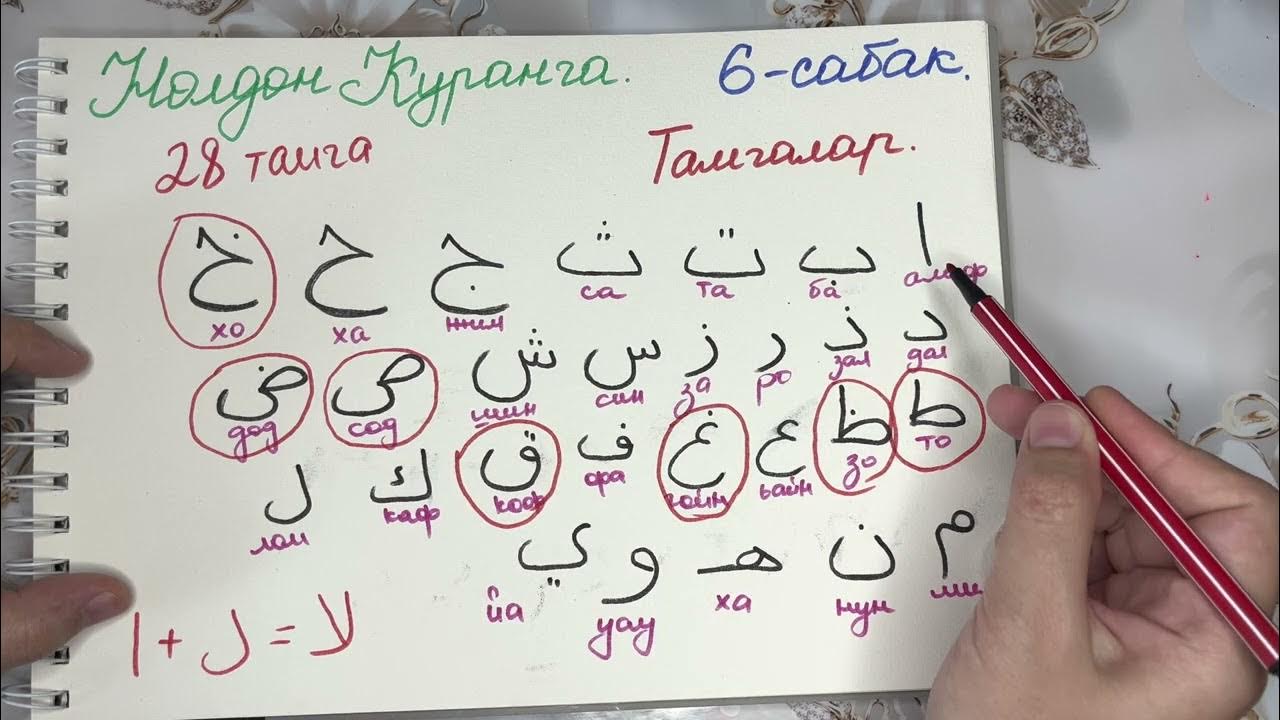 Нолдон Куранга. 6-сабак.
28 тамга Тамгалар.
ا ب ت ث ج ح خ
алиф ба та са жим ха хо
د ذ ر ز س ش ص ض
дал зал ро за син шин сод дод
ط ظ ع غ ف ق ك ل
то зо ъайн гойн фа коф каф лам
م ن هـ و ي
нун ха уау йа
ا + ل = لا